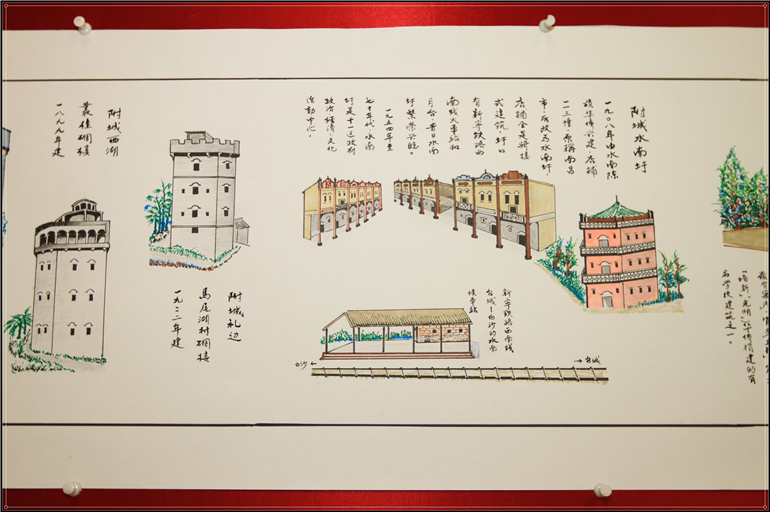 名学校建筑之一。
附城水南圩
一九〇八年由水南陈
族华侨兴建，店铺
一二三幢，原稱南昌
市，后改为水南圩，
店铺全是骑楼
式建筑。圩口
有新宁铁路西
南线火車站和
月台。昔日水南
圩繁荣兴旺。
一九五四年至
七十年代，水南
圩是十一区政府
政治经济，文化
活動中心。
新宁铁路西南线
台城—白沙的水南
候車站
白沙←
→台城
附城礼边
馬尾湖村碉楼
一九二二年建
附城西湖
叢佳碉楼
一八九九年建